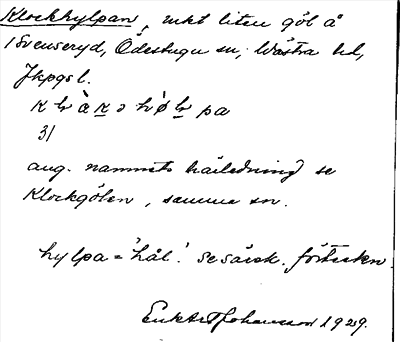 Klockhylpan, mkt liten göl å
Svenseryd, Ödestugu sn, Västra hd,
Jkpgs l.
31
ang. namnets härledning se
Klockgölen, samma sn.
hylpa = 'hål'. se särsk. förteckn.
Johansson 1929.